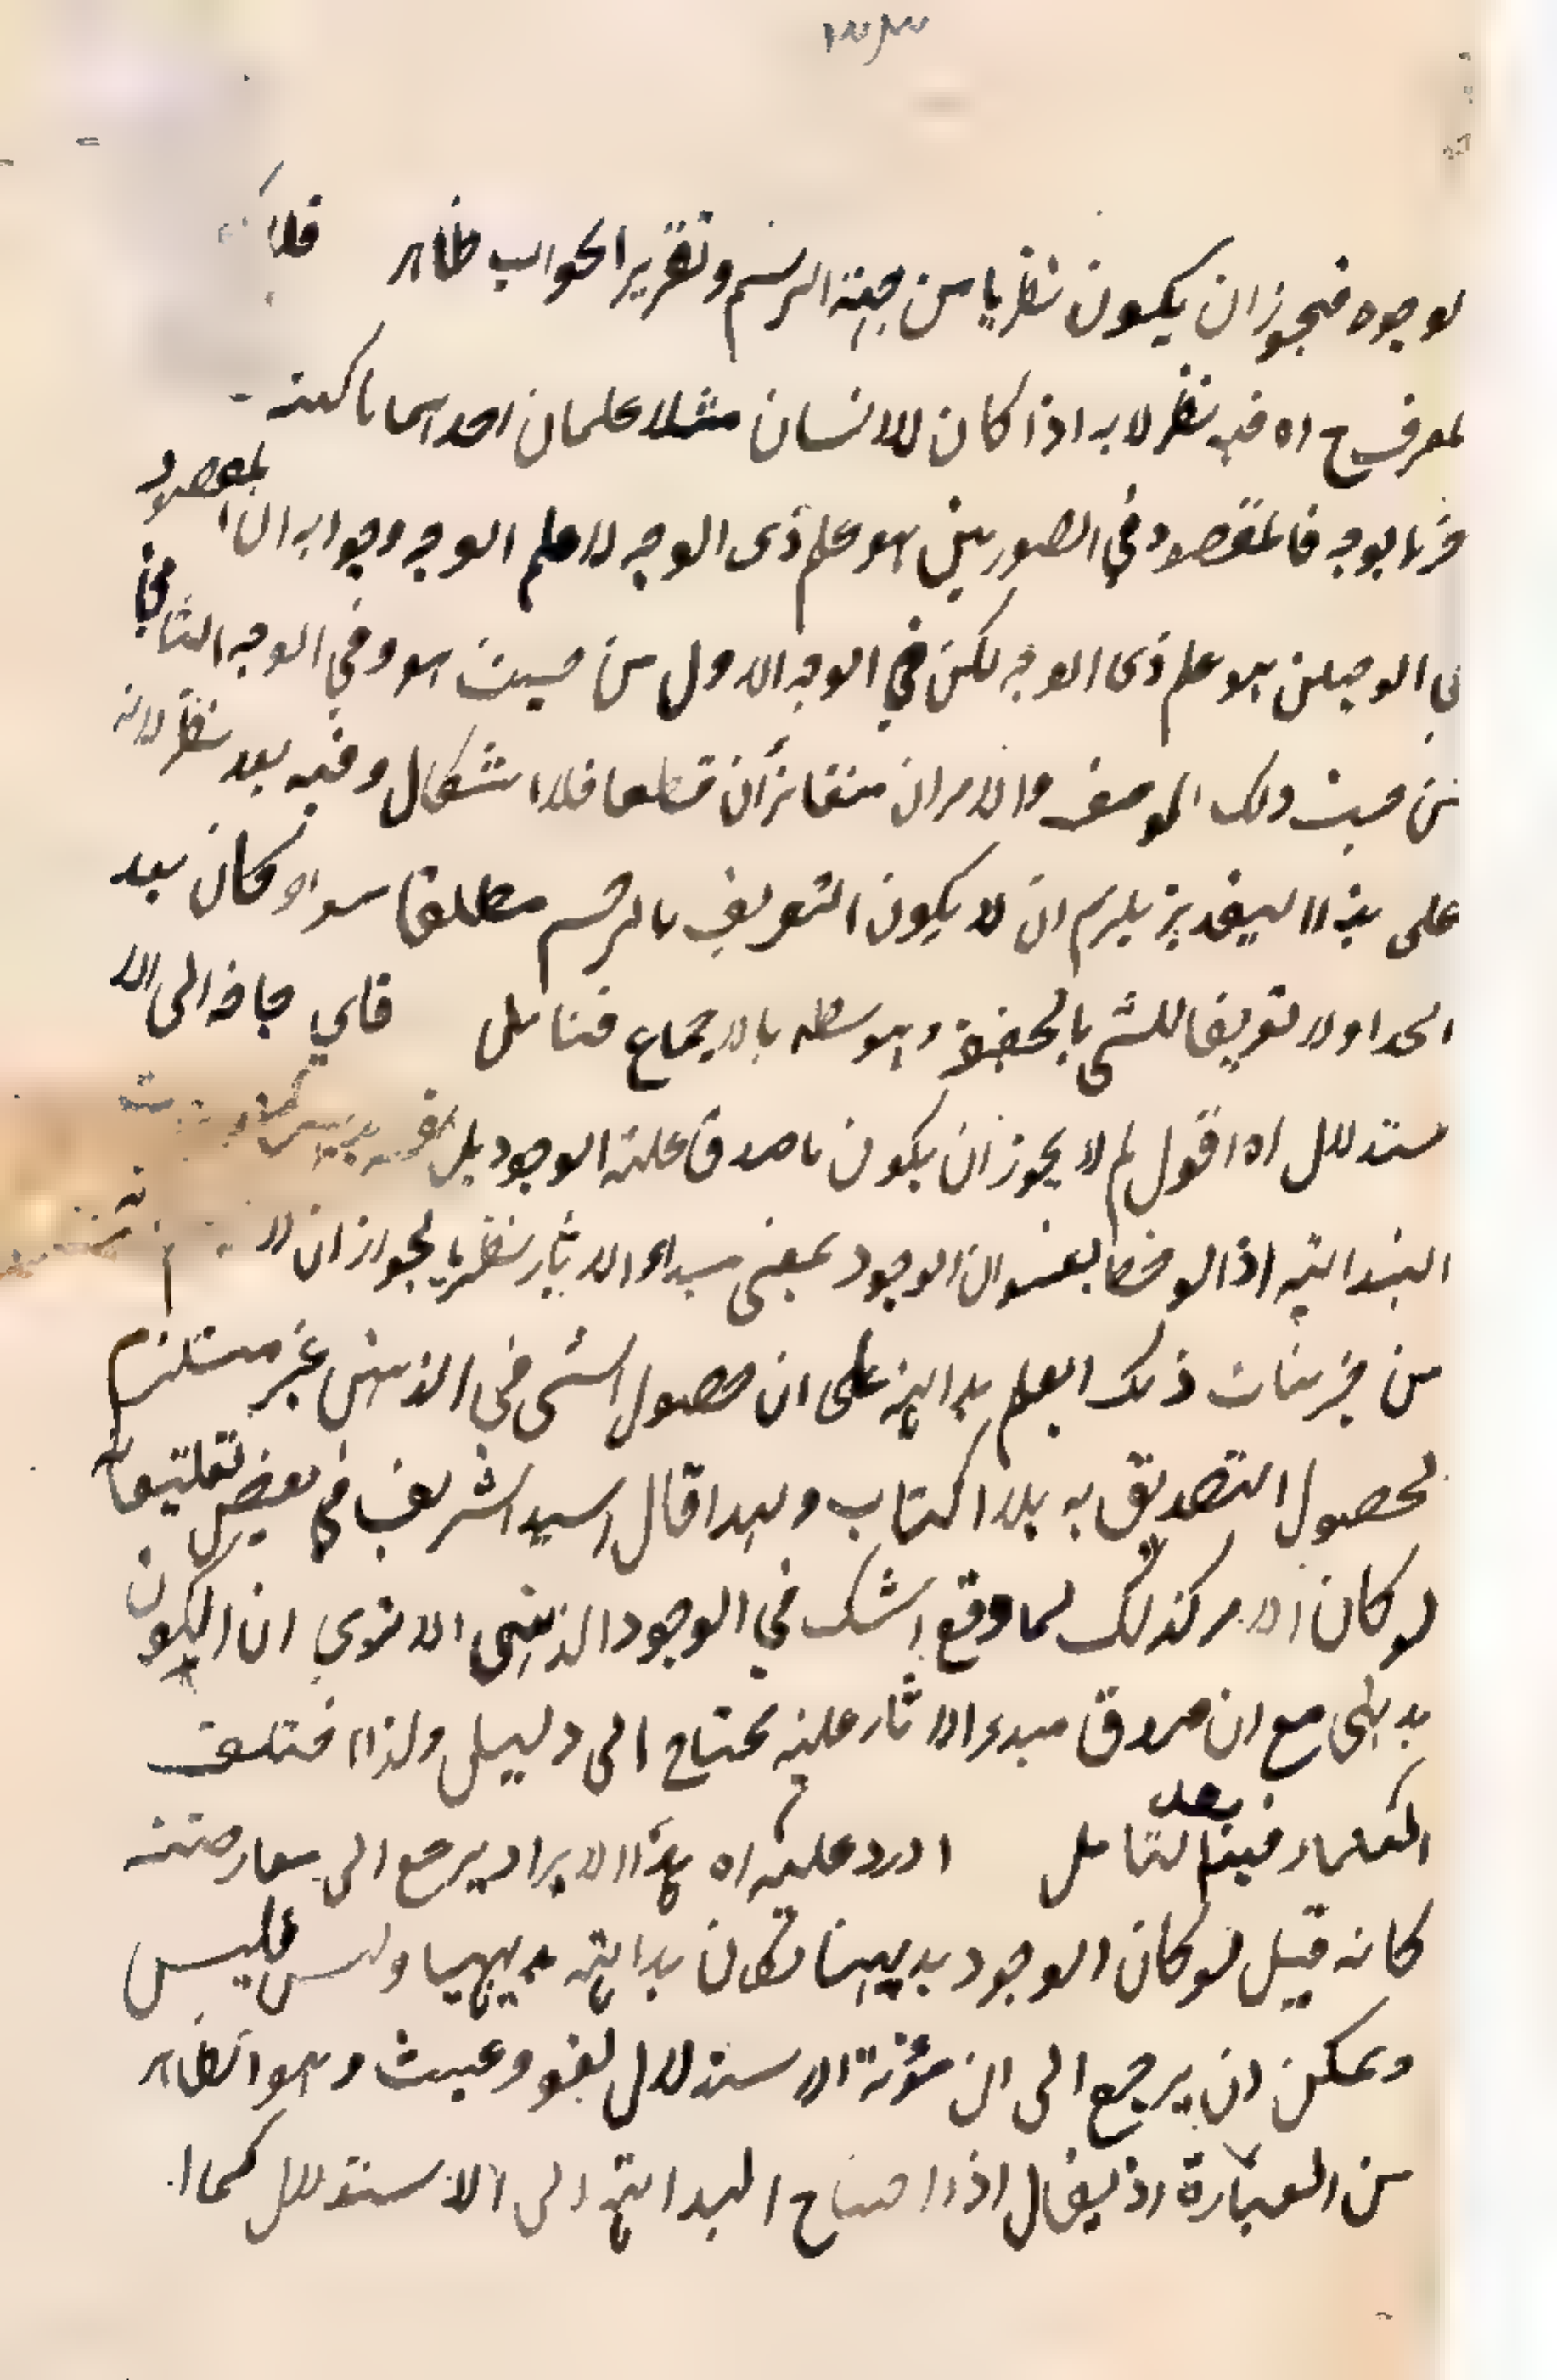 لوجوه فيجوز ان يكون نظريا من جهة الرسم وتقرير الجواب ظاهر قلا
المعرف ح اه فيه نظر لانه اذا كان للانسان مثلا علمان احدهما بالكنه
بوجه فالمقصود في الصورتين هو علم ذى الوجه لا علم الوجه وجوابه ان المقصود
الوجهين هو علم ذى الوجه لكن في الوجه الاول من حيث هو وفي الوجه الثاني
من حيث ذلك الوصف والامران متغائران قطعا فلا اشكال وفيه بعد نظر لانه
على هذا التقدير يلزم ان لا يكون التعريف بالرسم مطلقا سواء كان بعد
الحد او لا تعريفا للشى بالحقيقة وهو سطه بالاجماع فتامل حاجة الى الا
ستدلال اه اقول لم لا يجوز ان يكون ما صدق عليه الوجود بل
البداهة اذا لوحظ بعنوان الوجود بمعنى مبداء الاثار نظريا لجواز ان لا
من جزئيات ذلك العلم بداهة على ان حصول الشى في الذهن غير مستلزم
لحصول التصديق به بلا اكتساب ولهذا قال السيد الشريف في بعض تعليقاته
لو كان الامر كذلك لما وقع الشك في الوجود الذهنى الا ترى ان الكون
بديهى مع ان صدق مبدء الاثار عليه محتاج الى دليل ولذا اختلف
العلماء فيه بعد التامل اورد عليه اه هذا الايراد يرجع الى معارضته
كانه قيل لو كان الوجود بديهيا لكان بداهته بديهيا وليس فليس
ويمكن ان يرجع الى ان مؤنة الاستدلال لغو وعبث وهو الظاهر
من العبارة اذ يقال اذا احتاج البداهة الى الاستدلال كما